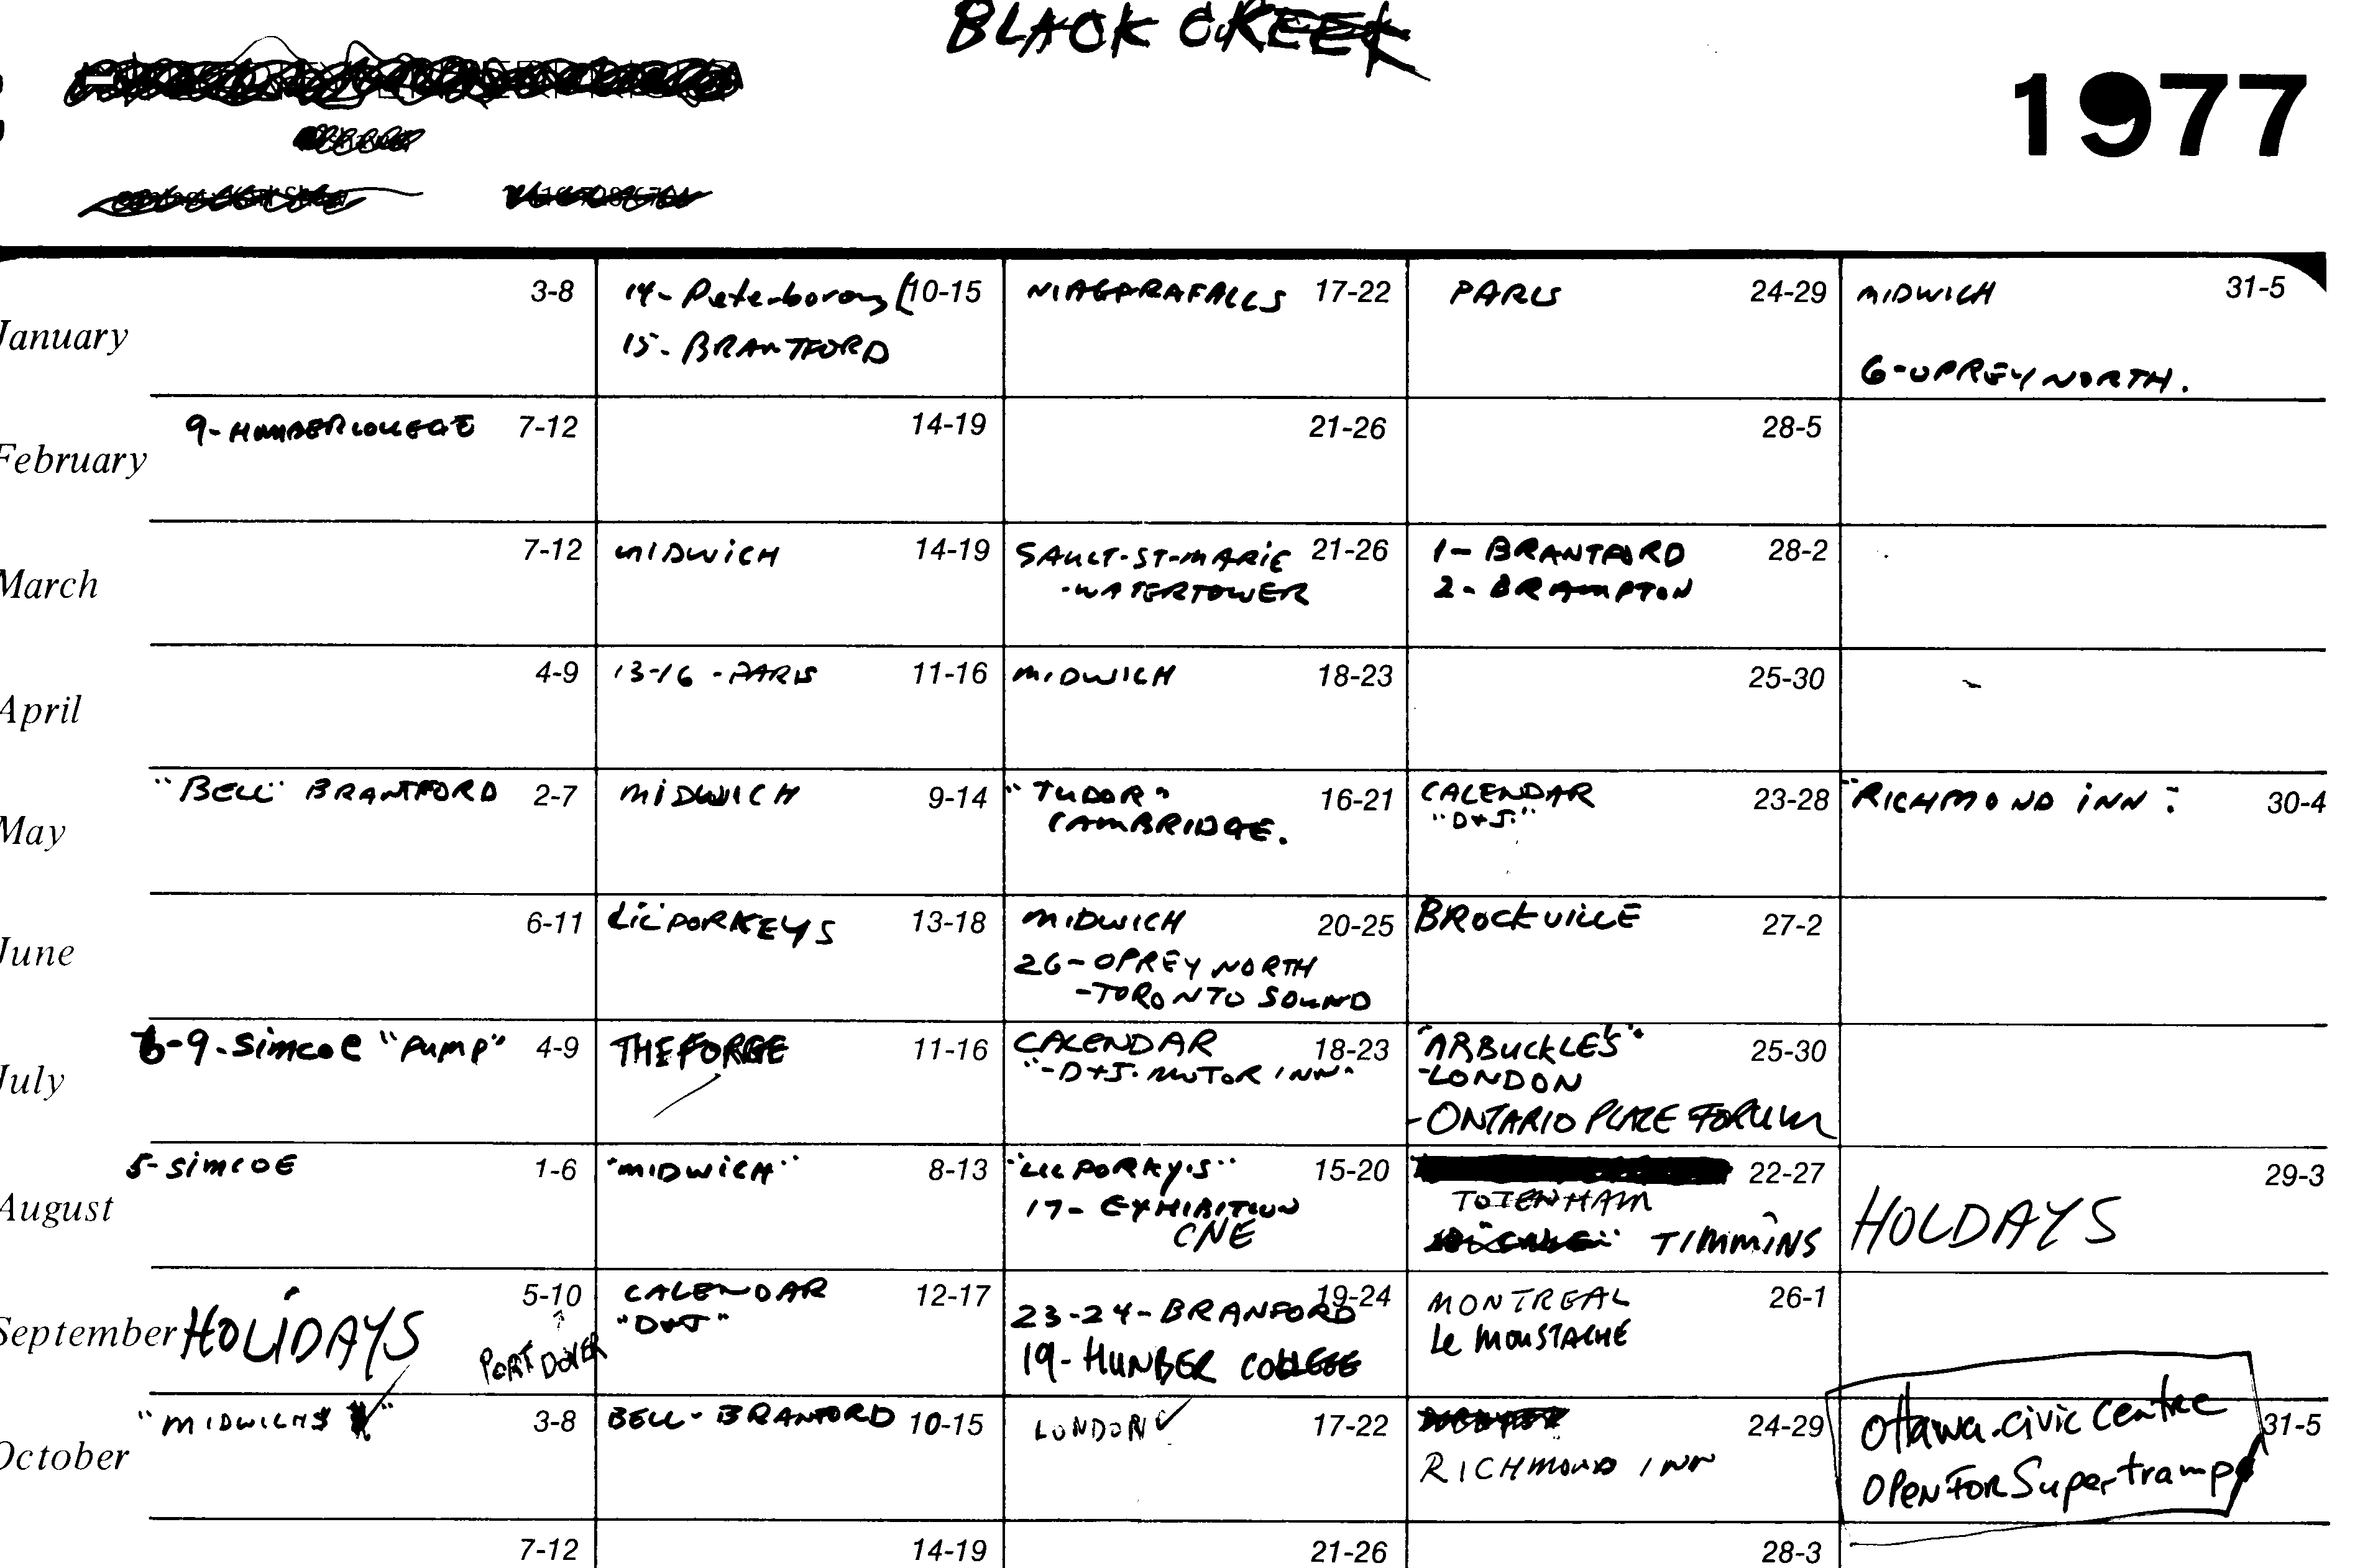 BLACK CREEK
1977
January
3-8
14- Peterboroug
10-15
15- BRANTFORD
NIAGARA FALLS 17-22
PARIS 24-29
MIDWICH 31-5
6-OPREY NORTH.
February
9- HUMBER COLLEGE 7-12
14-19
21-26
28-5
March
7-12
MIDWICH 14-19
SAULT-ST-MARIE 21-26
-WATERTOWER
1- BRANTFORD 28-2
2- BRAMPTON
April
4-9
13-16 - PARIS 11-16
MIDWICH 18-23
25-30
May
"BELL" BRANTFORD 2-7
MIDWICH 9-14
"TUDOR" 16-21
CAMBRIDGE.
CALENDAR 23-28
"D+J."
"RICHMOND INN" 30-4
June
6-11
LIL PORKEYS 13-18
MIDWICH 20-25
26-OPREY NORTH
-TORONTO SOUND
BROCKVILLE 27-2
July
6-9-Simcoe "Pump" 4-9
THE FORGE 11-16
CALENDAR 18-23
"-D+J. MOTOR INN"
"ARBUCKLE'S" 25-30
-LONDON
-ONTARIO PLACE FORUM
August
5-SIMCOE 1-6
"MIDWICH" 8-13
"LIL PORKY'S" 15-20
17- EXHIBITION
CNE
22-27
TOTENHAM
TIMMINS
29-3
HOLDAYS
September
HOLIDAYS
5-10
PORT DOVER
CALENDAR 12-17
"D+J"
19-24
23-24-BRANFORD
19-HUNBER COLLEGE
MONTREAL 26-1
Le MOUSTACHE
October
"MIDWICHS 3-8
BELL-BRANFORD 10-15
LONDON 17-22
24-29
RICHMOND INN
Ottawa-Civic Centre
31-5
OPEN FOR Supertramp
7-12
14-19
21-26
28-3